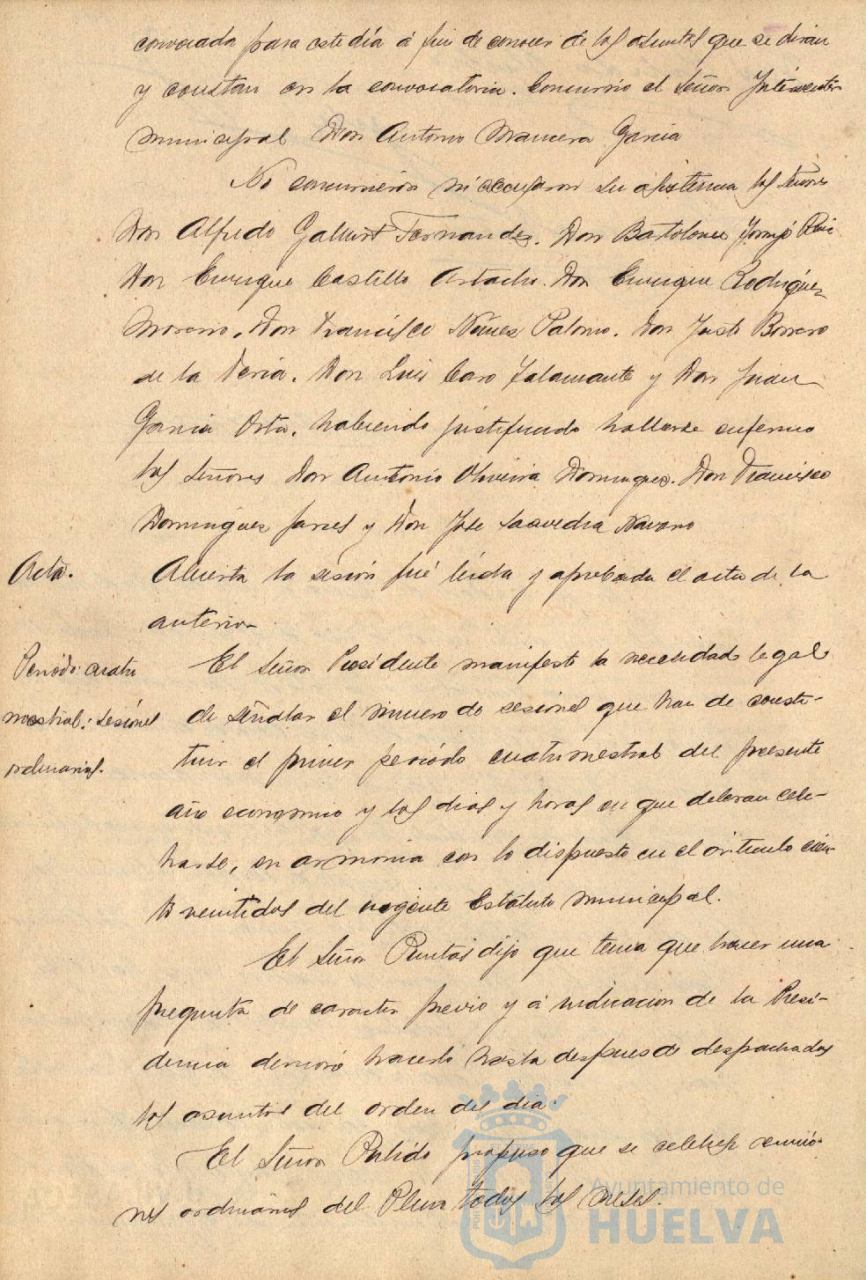 convocada para este día á fin de conocer de los asuntos que se dirán
y constan en la convocatoria. Concurrió el Señor Interventor
municipal Don Antonio Mancera Garcia
No concurrieron ni excusaron su asistencia los Señores
Don Alfredo Fernandez. Don Bartolome
Don Enrique Castillo Artacho. Don Enrique Rodriguez
Moreno. Don Francisco Nuñez Palomo. Don Justo Borrero
de la Feria. Don Luis Caro Talamante y Don Juan
Garcia Orta. habiendo justificado hallarse enfermo
los Señores Don Antonio Oliveira Dominguez. Don Francisco
Dominguez Garces y Don Jose Saavedra Navarro
Acta.
Abierta la sesión fué leida y aprobada el acta de la
anterior
Período cuatri
mestral: Sesiones
ordinarias.
El Señor Presidente manifestó la necesidad legal
de señalar el número de sesiones que han de consti-
tuir el primer período cuatrimestral del presente
año economico y los dias y horas en que deberan cele-
brarse, en armonia con lo dispuesto en el articulo cien-
to veintidos del vigente Estatuto municipal.
El Señor dijo que tenia que hacer una
pregunta de caracter previo y á indicacion de la Presi-
dencia demoró hacerlo hasta despues de despachados
los asuntos del orden del dia.
El Señor Pulido propuso que se celebren reunio-
nes ordinarias del Pleno todos los meses.
Ayuntamiento de
HUELVA